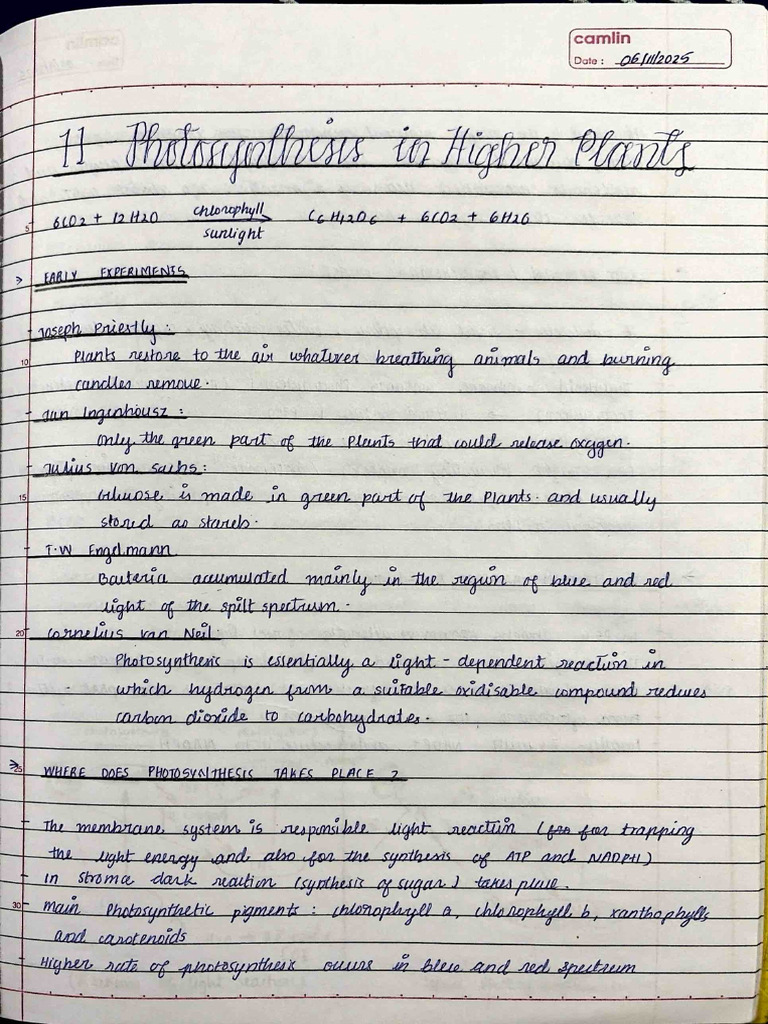 camlin
Date: 06/11/2025
11 Photosynthesis in Higher Plants
6CO2 + 12H2O chlorophyll sunlight C6H12O6 + 6CO2 + 6H2O
5
EARLY EXPERIMENTS
Joseph Priestly:
Plants restore to the air whatever breathing animals and burning
10
candles remove.
Jan Ingenhousz:
Only the green part of the Plants that could release oxygen.
Julius Von Sachs:
Glucose is made in green part of the Plants. and usually
15
stored as starch.
T.W Engelmann
Bacteria accumulated mainly in the region of blue and red
light of the spilt spectrum.
20
Cornelius van Neil:
Photosynthesis is essentially a light-dependent reaction in
which hydrogen from a suitable oxidisable compound reduces
carbon dioxide to carbohydrates.
25
WHERE DOES PHOTOSYNTHESIS TAKES PLACE?
The membrane system is responsible light reaction (for for trapping
the light energy and also for the synthesis of ATP and NADPH)
In stroma dark reaction (synthesis of sugar) takes place.
30
Main Photosynthetic pigments: chlorophyll a, chlorophyll b, xanthophylls
and carotenoids
Higher rate of photosynthesis occurs in blue and red spectrum